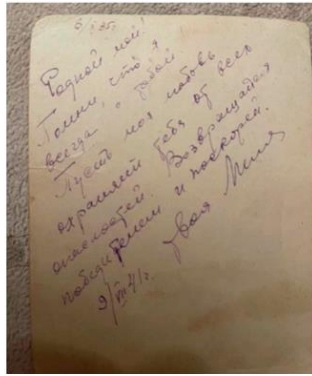 Родной мой!
Помни, что я
всегда с тобой
Пусть моя любовь
охраняет тебя от всех
опасностей. Возвращайся
победителем и поскорей.
твоя Миля
9/VII 41 г.